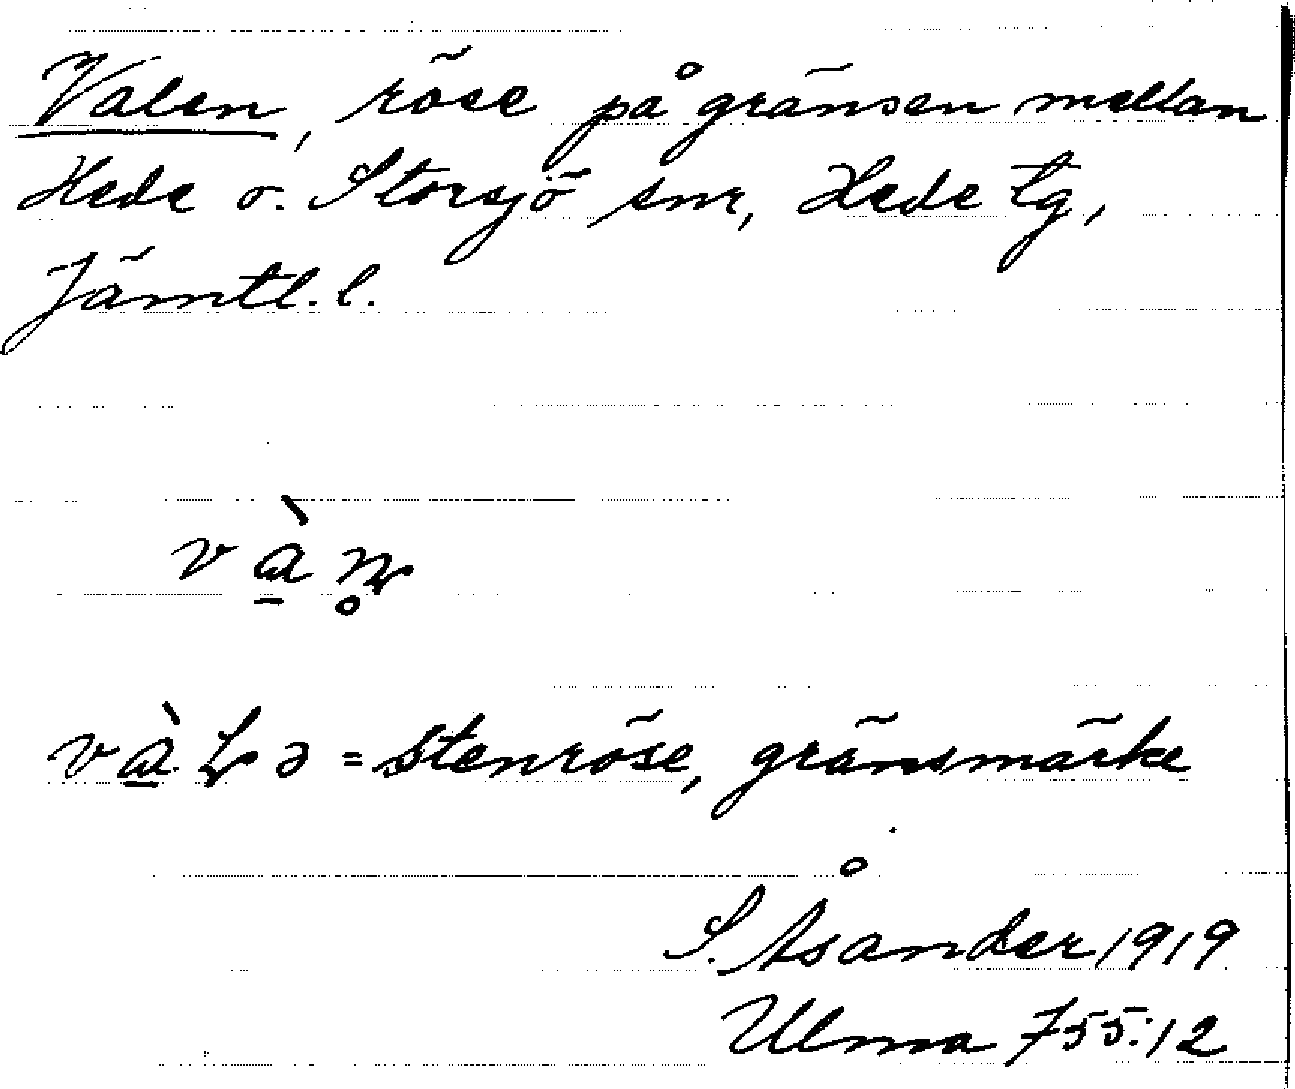 Valen, röse på gränsen mellan
Hede o. Storsjö snr, Hede tg,
Jämtl. l.
= stenröse, gränsmärke
S. Åsander 1919
Ulma 755:12